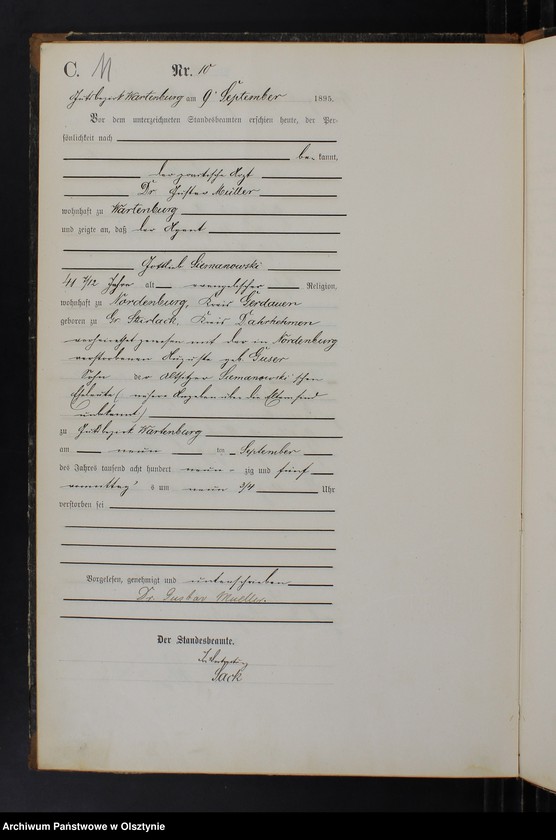 C. M Nr. 10
Gutsbezirk Wartenburg am 9. September 1895.
Vor dem unterzeichneten Standesbeamten erschien heute, der Per-
sönlichkeit nach
be- kannt,
der practische Arzt
Dr. Gustav Müller
wohnhaft zu Wartenburg
und zeigte an, daß der Agent
Gottlieb Siemanowski
41 7/12 Jahre alt evangelischer Religion,
wohnhaft zu Nordenburg, Kreis Gerdauen
geboren zu Gr. Sterlack, Kreis
verheirathet gewesen mit der in Nordenburg
verstorbenen Auguste geb.
Sohn der Altsitzer Siemanowski'schen
Eheleute (nähere Angaben über die Eltern sind
unbekannt)
zu Gutsbezirk Wartenburg
am neun ten September
des Jahres tausend acht hundert neun- zig und fünf
vormittag s um neun 3/4 Uhr
verstorben sei
Vorgelesen, genehmigt und unterschrieben
Dr. Gustav Mueller.
Der Standesbeamte.
In Vertretung
Sack
Archiwum Państwowe w Olsztynie